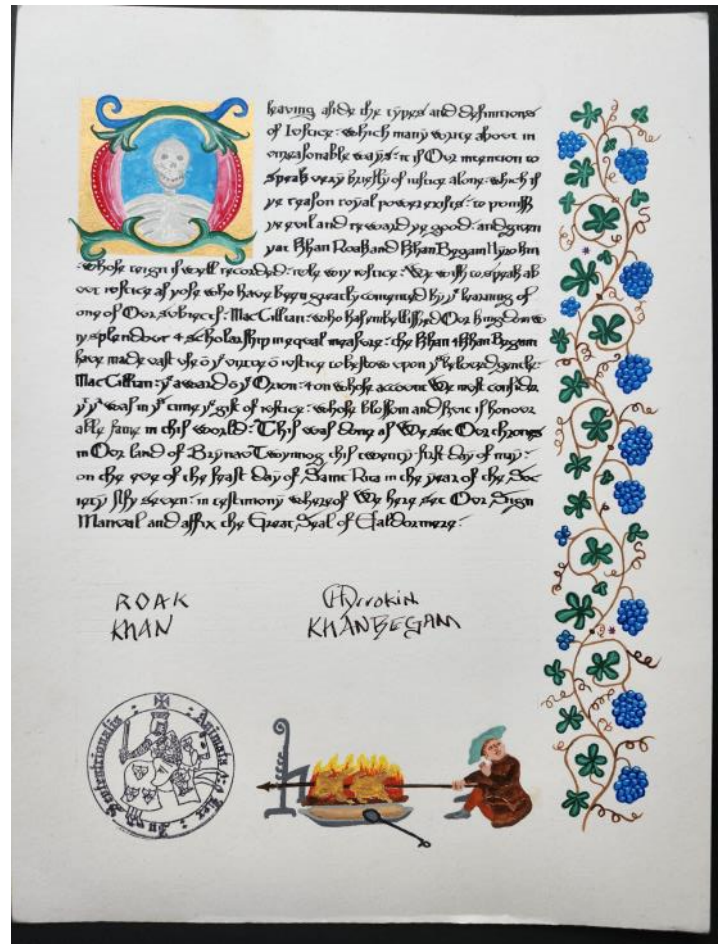 leaving aside the types and definitions
of Iustice: which many write about in
unreasonable ways: it is Our intention to
speak very briefly of iustice alone: which is
ye reason royal power exists: to punish
ye evil and reward ye good: and given
yat Khan Roak and Khan Begam Hyrokin
whose reign is well recorded: rule wiy iustice: We wish to speak ab
out iustice as yose who have been greatly comented by yᵉ learning of
one of Our subiects: MacGillian: who has embellished Our kingdom w
iy splendour + scholarship in equal measure: the Khan + Khan Begam
have made vast use ō yᵉ virtue ō iustice to bestow upon yᵉ beloved gentle:
MacGillian: yᵉ award ō yᵉ Orion: + on whose account We most consider
yᵗ yᵗ was in yˢ time yᵉ gift of iustice: whose blossom and fruit is honour
able fame in this world: This was done as We sat Our thrones
in Our land of Brynau Twynnog this twenty first day of may:
on the eve of the feast day of Saint Rita in the year of the Soc
iety fifty seven: in testimony whereof We here set Our Sign
Manual and affix the Great Seal of Ealdormere:
ROAK
KHAN
Hyrrokin
KHANBEGAM